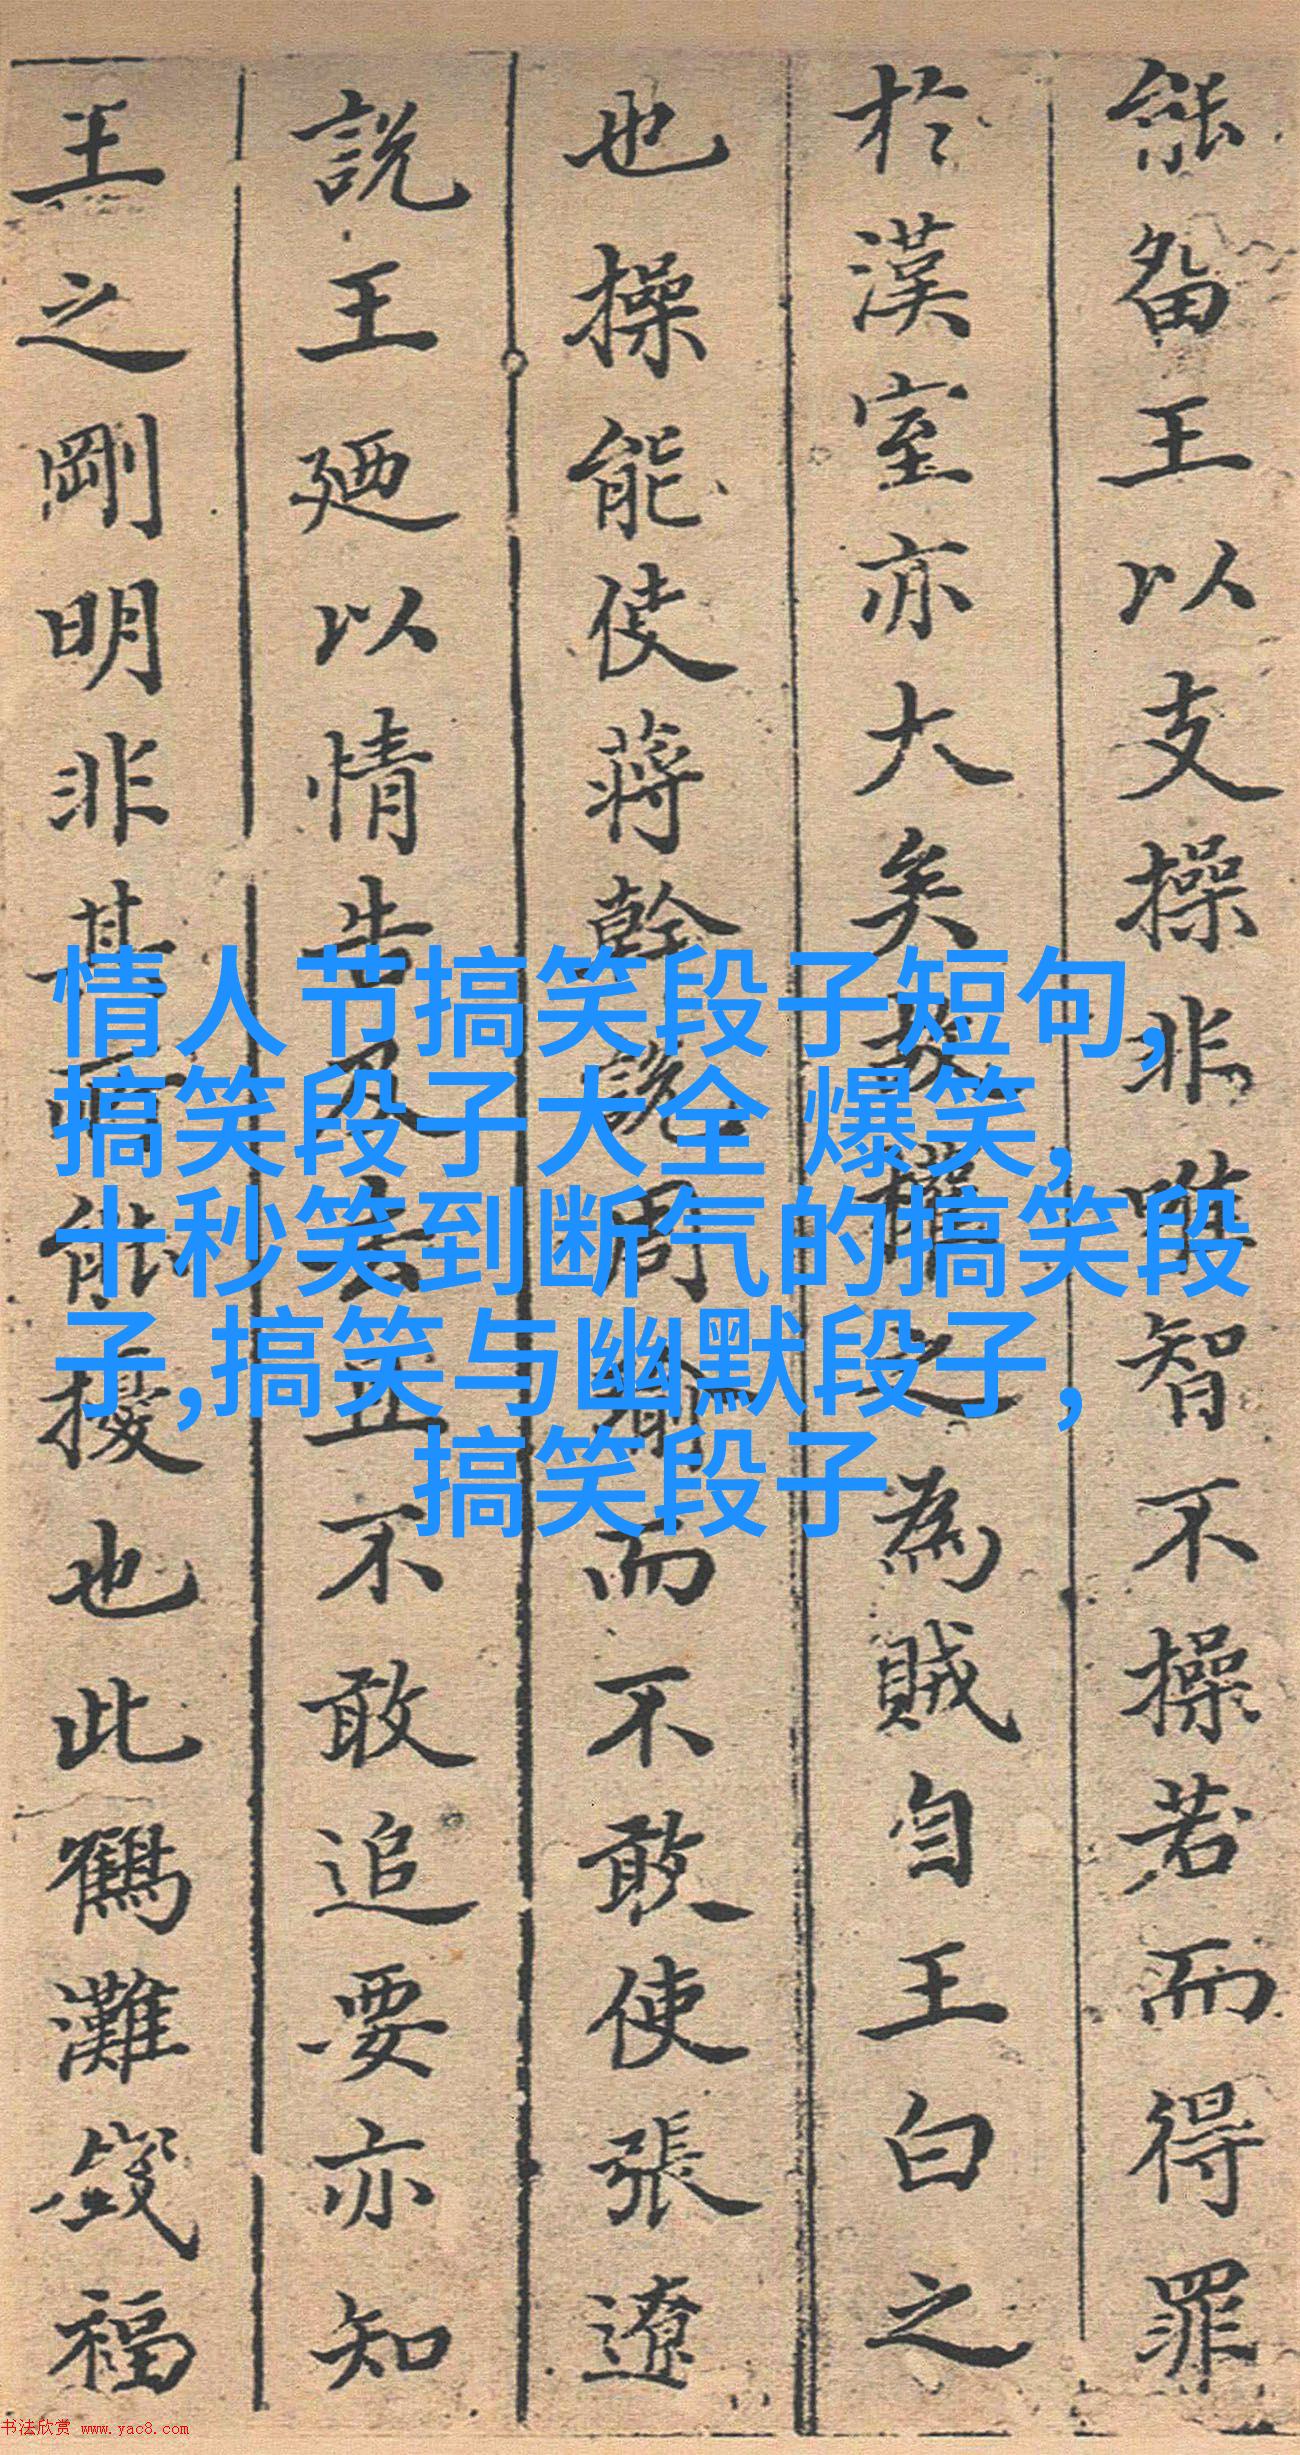 能畱王以支操非唯智不操若而得罪
於漢室亦大矣故權之為賊自王白之
也操能使蔣幹說周瑜而不敢使張遼
說王廼以情告及去且不敢追要亦知
王之剛明非其所能擾也此鶴灘福
情人节搞笑段子短句,
搞笑段子大全 爆笑,
十秒笑到断气的搞笑段
子,搞笑与幽默段子,
搞笑段子
书法欣赏 www.yac8.com